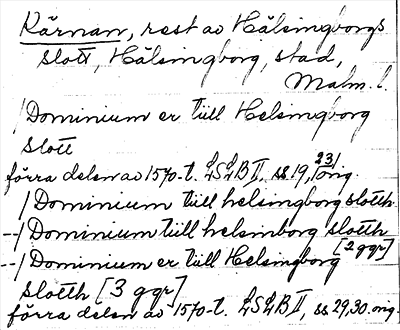 Kärnan, rest av Hälsingborgs
slott, Hälsingborg, stad,
Malm. l.
/Dominium er tiill Helsingborg
slott
förra delen av 1570-t. LSLB II, ss 19, 23/orig.
/Dominium tiill helsingborg slotth
--/Dominium tiill helsinborg slotth
[2 ggr]
--/Dominium er tiill Helsingborg
slotth [3 ggr]
förra delen av 1570-t. LSLB II, ss 29,30. orig.